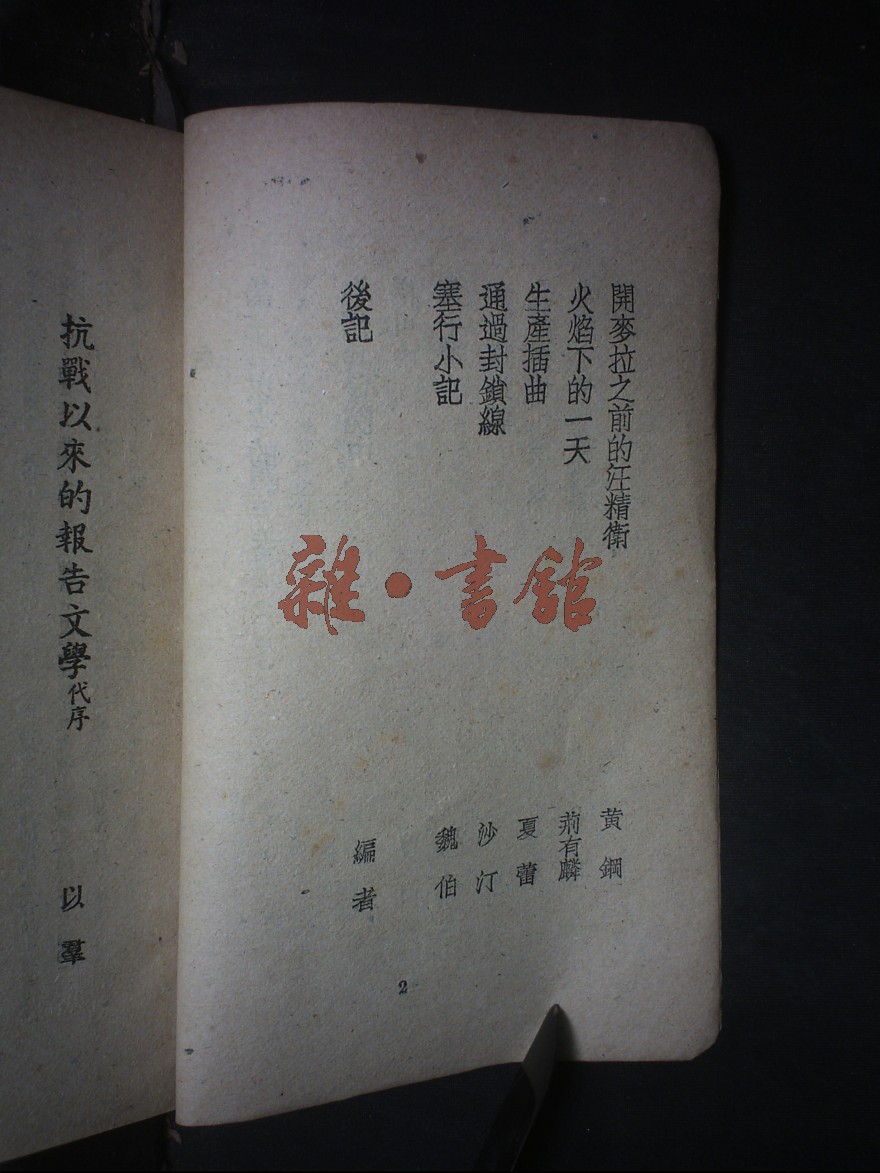 開麥拉之前的汪精衛 黄鋼
火焰下的一天 荊有麟
生產插曲 夏蕾
通過封鎖線 沙汀
塞行小記 魏伯
後記 編者
2
抗戰以來的報告文學代序 以羣
雜·書館